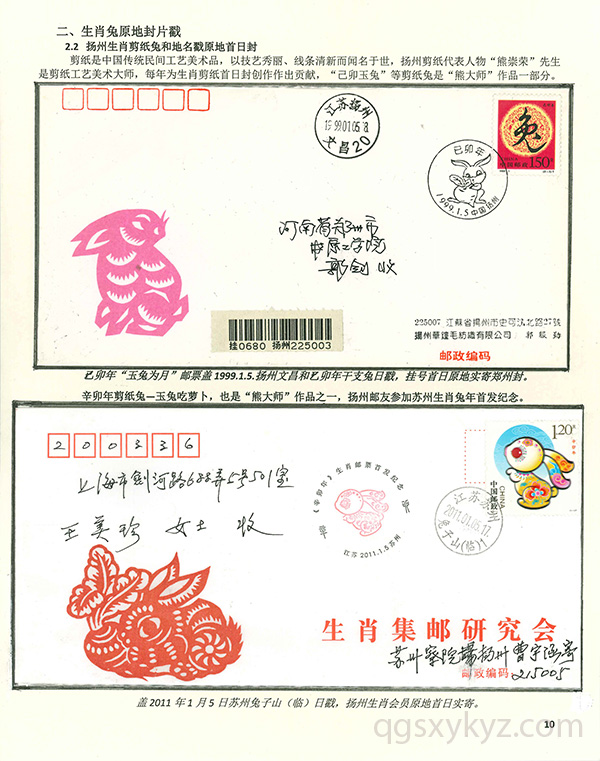 二、生肖兔原地封片戳
2.2 扬州生肖剪纸兔和地名戳原地首日封
剪纸是中国传统民间工艺美术品，以技艺秀丽、线条清新而闻名于世，扬州剪纸代表人物“熊崇荣”先生
是剪纸工艺美术大师，每年为生肖剪纸首日封创作作出贡献，“己卯玉兔”等剪纸兔是“熊大师”作品一部分。
江苏扬州
1999.01.05.18
文昌20
兔
150分
中国邮政
己卯年
1999.1.5 中国扬州
河南省郑州市
中原工学院
郭剑 收
挂0680 扬州225003
225007 江蘇省揚州市史可法北路27號
邮政编码
己卯年“玉兔为月”邮票盖 1999.1.5.扬州文昌和己卯年干支兔日戳，挂号首日原地实寄郑州封。
辛卯年剪纸兔—玉兔吃萝卜，也是“熊大师”作品之一，扬州邮友参加苏州生肖兔年首发纪念。
200336
上海市剑河路688弄5号501室
王美珍 女士 收
《辛卯年》生肖邮票首发纪念
江苏 2011.1.5 苏州
1.20元
中国邮政
CHINA
江苏苏州
2011.01.05.17
兔子山(临)1
生肖集邮研究会
邮政编码
215005
盖 2011 年 1 月 5 日苏州兔子山（临）日戳，扬州生肖会员原地首日实寄。
10
qgsxykyz.com